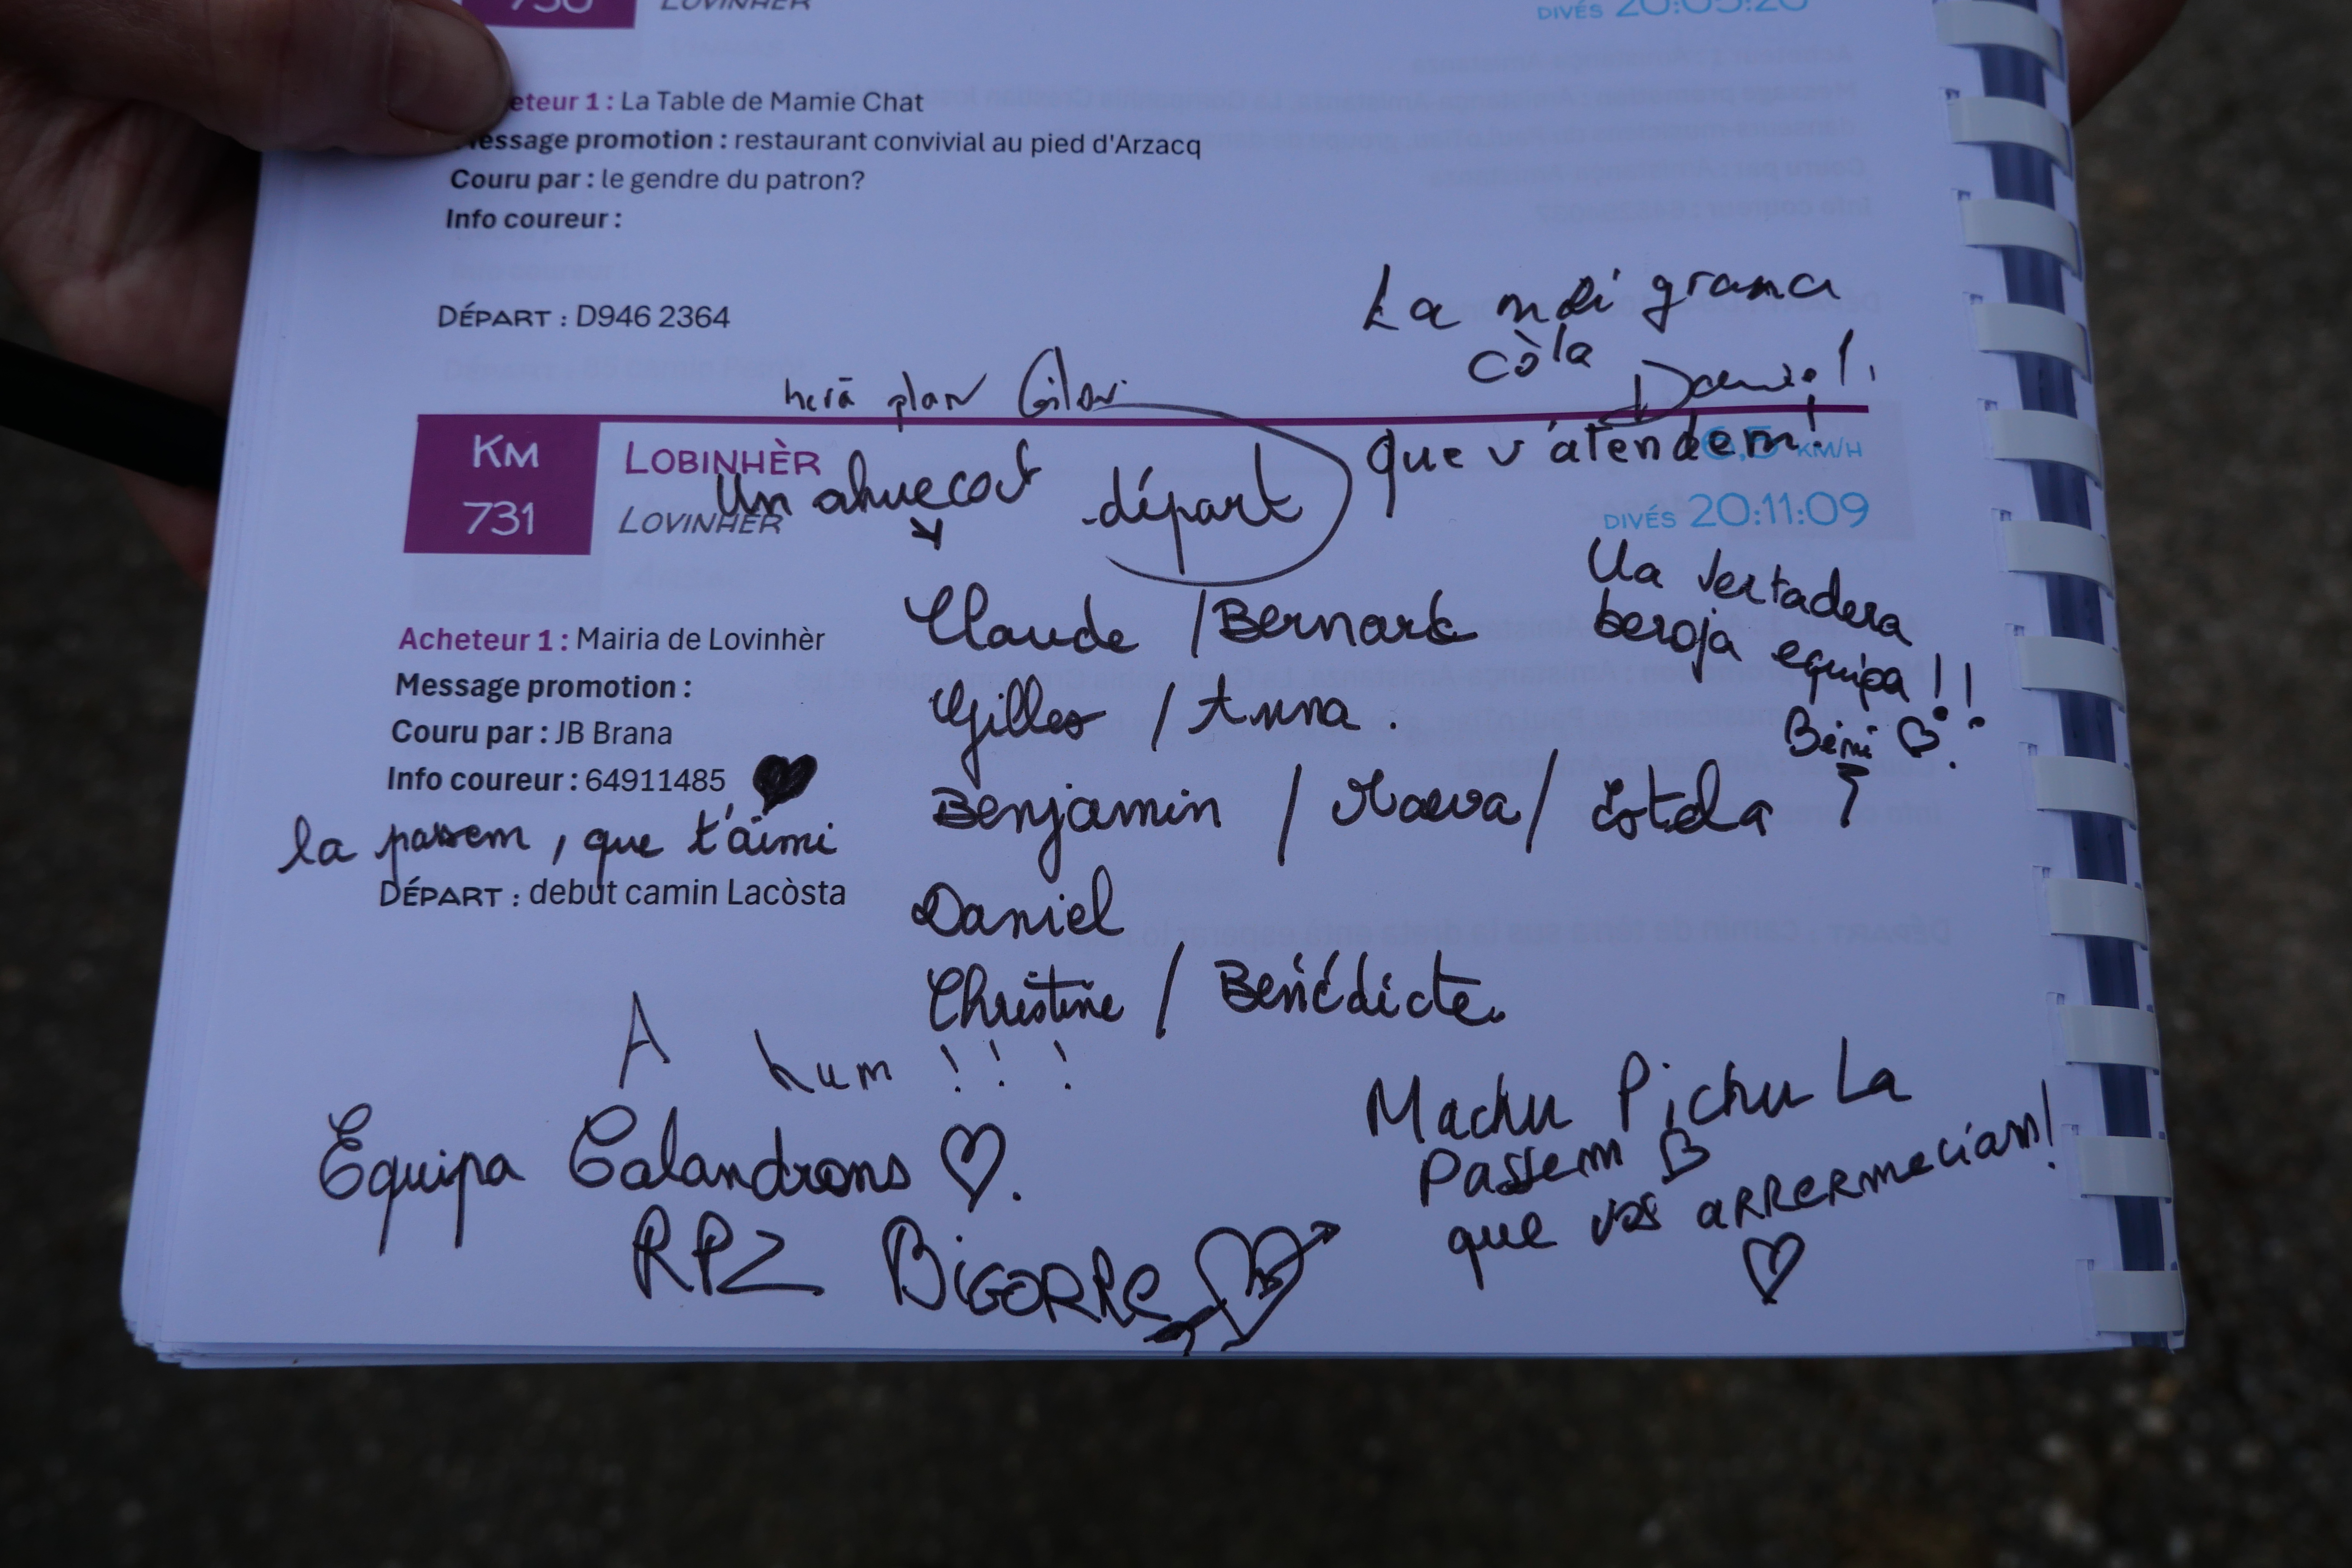 LOVINHÈR
DIVÉS 20:05:20
eteur 1 : La Table de Mamie Chat
essage promotion : restaurant convivial au pied d'Arzacq
Couru par : le gendre du patron?
Info coureur :
DÉPART : D946 2364
La mei grana
còla
Daniel!
herà plan
que v'atendem!
KM
731
LOBINHÈR
LOVINHÈR
KM/H
DIVÉS 20:11:09
Un ahuecot
départ
Ua vertadera
beroja equipa!!
Béni
Claude / Bernard
Gilles / Anna.
Benjamin / Maeva / Estela
Daniel
Christine / Bénédicte.
Acheteur 1 : Mairia de Lovinhèr
Message promotion :
Couru par : JB Brana
Info coureur : 64911485
la passem, que t'aimi
DÉPART : debut camin Lacòsta
A hum !!!
Equipa Calandrons
RPZ BIGORRE
Machu Pichu La
Passem
que vos arrermeciam!